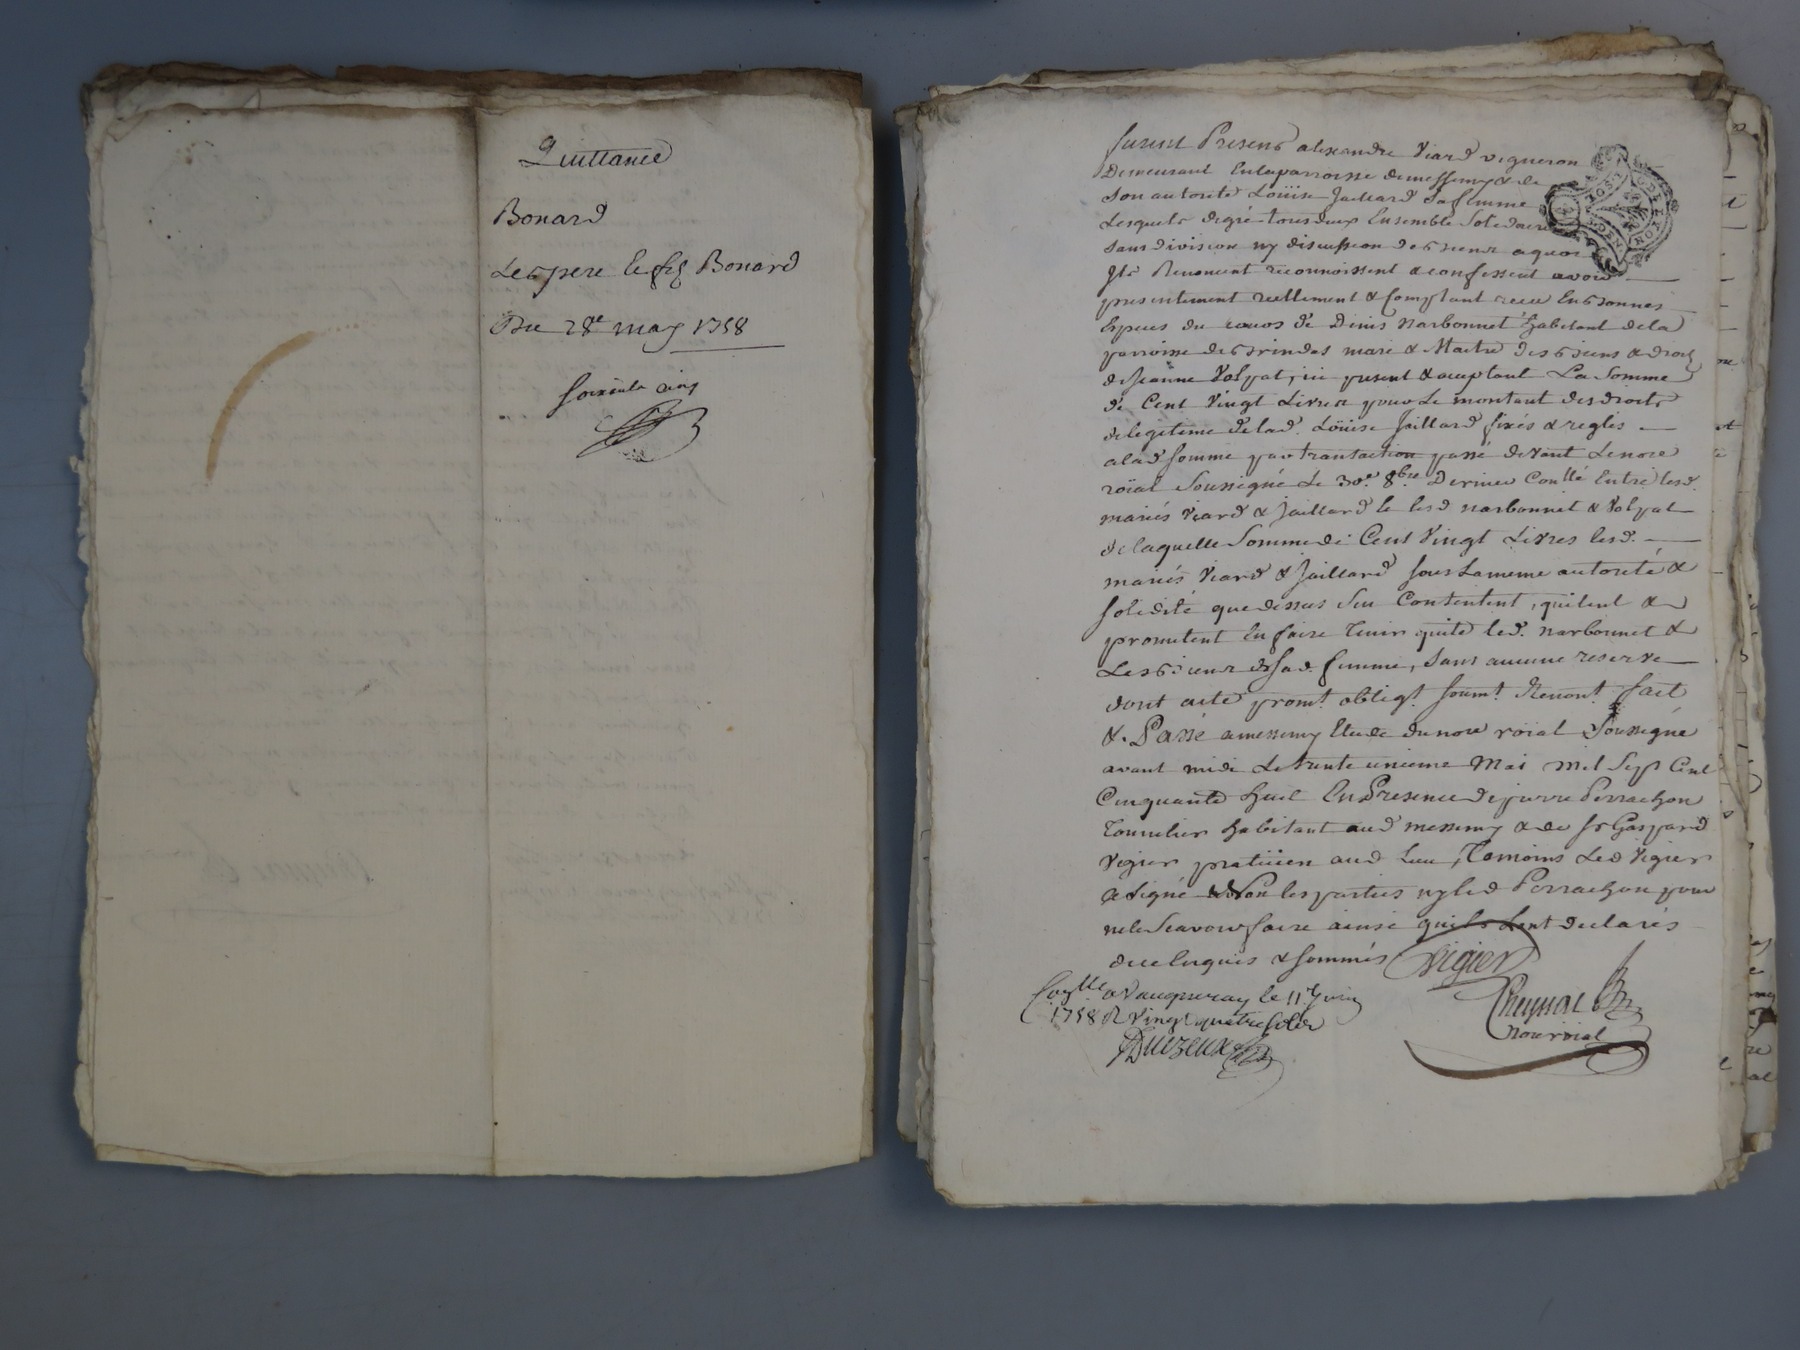 Quittance
Bonard
Les pere le fils Bonard
Du 28e may 1758
soixante cinq
furent Presens alexandre Viard vigneron
Demeurant En la parroisse de messimy & de
son autorité Loüise Jaillard sa femme
Lesquels de gré tous deux Ensemble Solidaire
sans division ny discussion de biens a quoi
Ils Renoncent reconnoissent & confessent avoir
presentement reellement & comptant receu En bonnes
Especes du cours de Denis Narbonnet habitant de la
parroisse de brindas mari & Maitre des biens & droits
de Jeanne Volpat, ici present & acceptant La Somme
de Cent Vingt Livres pour Le montant des droits
de legitime de lad. Loüise Jaillard fixés & reglés
a lad somme par transaction passé devant Le nore
roïal Soussigné Le 30e. 8bre Dernier Conllé Entre lesd.
mariés Viard & Jaillard & lesd narbonnet & Volpat
de laquelle Somme de Cent Vingt Livres lesd.
mariés Viard & Jaillard sous La meme autorité &
solidité que dessus s'en Contentent, quitent &
promettent En faire Tenir quite led. narbonnet &
Les siens & sad. femme, sans aucune reserve
dont acte promt. obligt. soumt. Renont. fait
& Passé a messimy Etude du nore roïal Soussigné
avant midi Le trente unieme Mai mil Sept Cent
Cinquante huit En Presence de pierre Perrachon
Tonnelier habitant aud messimy & de sr Gaspard
Vigier praticien aud lieu, Temoins Led Vigier
a signé & non les parties ny led Perrachon pour
ne le Scavoir faire ainsi qu'ils l'ont declarés
de ce Enquis & sommés Vigier
Conllé a Vaugneray le 11e Juin
1758 R Vingt quatre sols
Duezeux
Cheynac
Nore roial